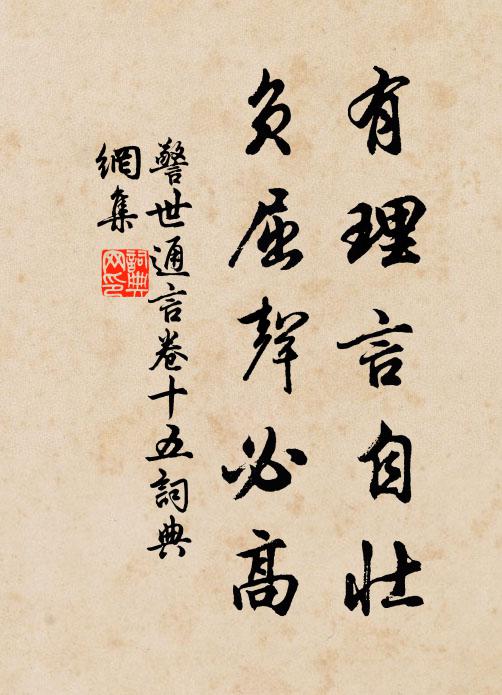 有理言自壯
负屈聲必高
警世通言卷十五詞典
網集
詞典
网印